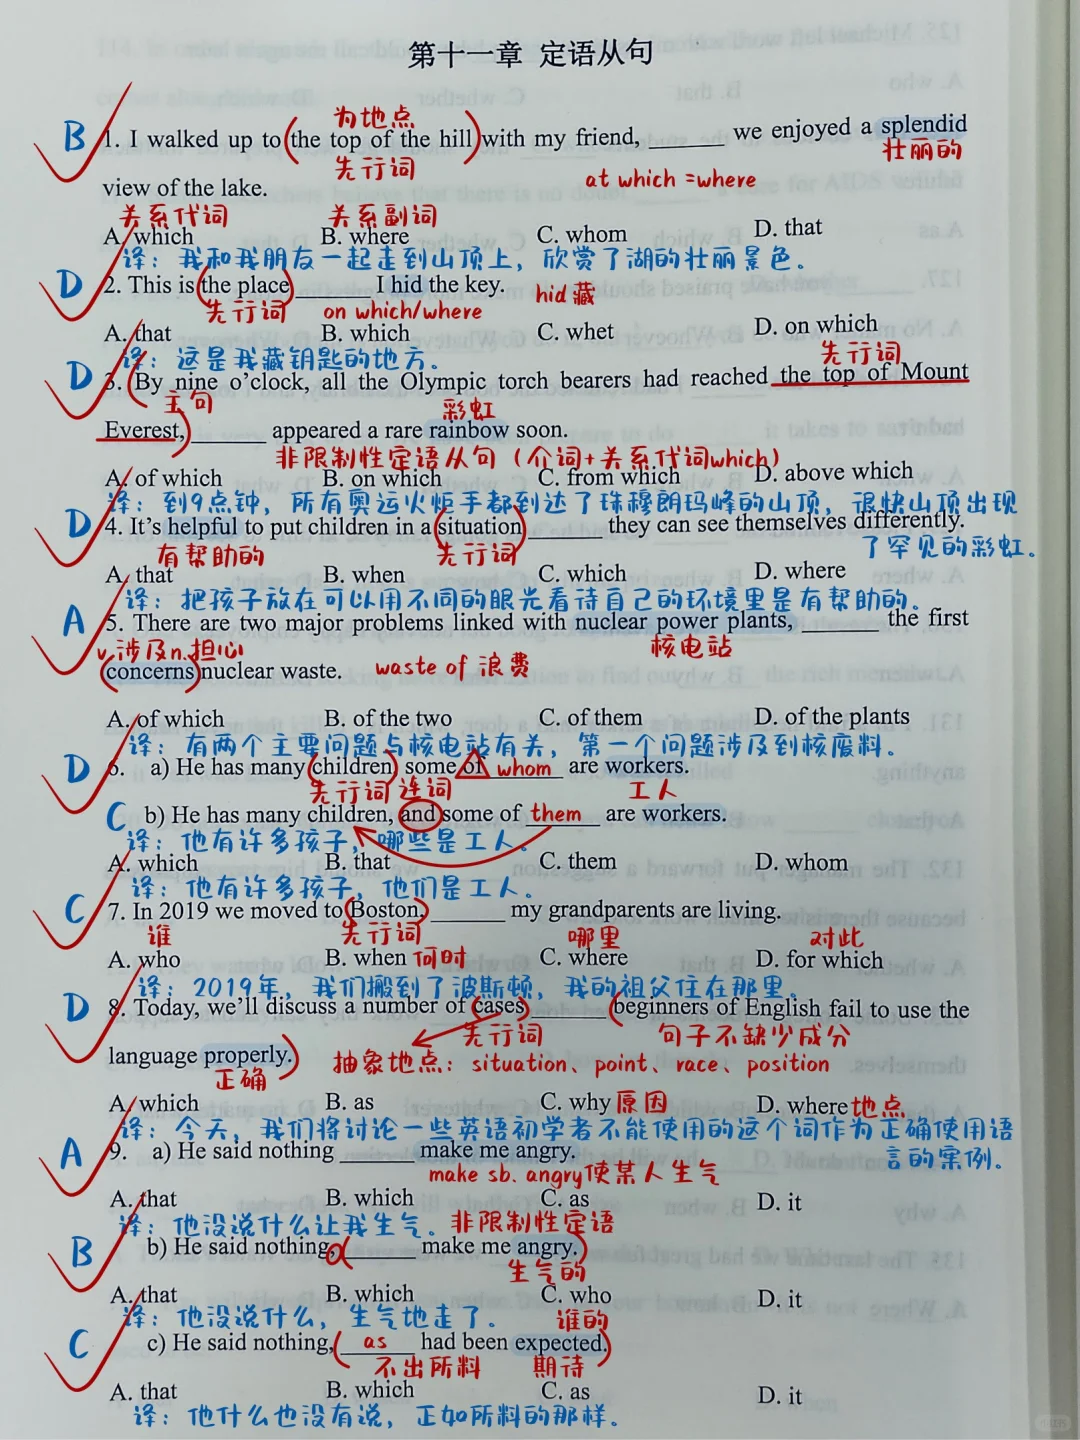 第十一章 定语从句
为地点
B 1. I walked up to (the top of the hill) with my friend, ______ we enjoyed a splendid
先行词 at which =where 壮丽的
view of the lake.
关系代词 关系副词
A. which B. where C. whom D. that
译：我和我朋友一起走到山顶上，欣赏了湖的壮丽景色。
D 2. This is (the place) ______ I hid the key. hid藏
先行词 on which/where
A. that B. which C. whet D. on which
译：这是我藏钥匙的地方。 先行词
D 3. (By nine o'clock, all the Olympic torch bearers had reached the top of Mount
主句 彩虹
Everest,) ______ appeared a rare rainbow soon.
非限制性定语从句（介词+关系代词which）
A. of which B. on which C. from which D. above which
译：到9点钟，所有奥运火炬手都到达了珠穆朗玛峰的山顶，很快山顶出现
了罕见的彩虹。
D 4. It's helpful to put children in a (situation) ______ they can see themselves differently.
有帮助的 先行词
A. that B. when C. which D. where
译：把孩子放在可以用不同的眼光看待自己的环境里是有帮助的。
A 5. There are two major problems linked with nuclear power plants, ______ the first
v.涉及n.担心 核电站
(concerns) nuclear waste. waste of 浪费
A. of which B. of the two C. of them D. of the plants
译：有两个主要问题与核电站有关，第一个问题涉及到核废料。
D 6. a) He has many (children), some of whom are workers.
先行词 连词 工人
C b) He has many children, and some of them are workers.
译：他有许多孩子，哪些是工人。
A. which B. that C. them D. whom
译：他有许多孩子，他们是工人。
C 7. In 2019 we moved to (Boston,) ______ my grandparents are living.
谁 先行词 哪里 对此
A. who B. when 何时 C. where D. for which
译：2019年，我们搬到了波斯顿，我的祖父住在那里。
D 8. Today, we'll discuss a number of (cases) ______ (beginners of English fail to use the
先行词 句子不缺少成分
language properly.) 抽象地点：situation、point、race、position
正确
A. which B. as C. why原因 D. where地点
译：今天，我们将讨论一些英语初学者不能使用的这个词作为正确使用语
言的案例。
A 9. a) He said nothing ______ make me angry.
make sb. angry使某人生气
A. that B. which C. as D. it
译：他没说什么让我生气。 非限制性定语
B b) He said nothing, (______ make me angry.)
生气的
A. that B. which C. who D. it
译：他没说什么，生气地走了。 谁的
C c) He said nothing, (as had been expected.)
不出所料 期待
A. that B. which C. as D. it
译：他什么也没有说，正如所料的那样。